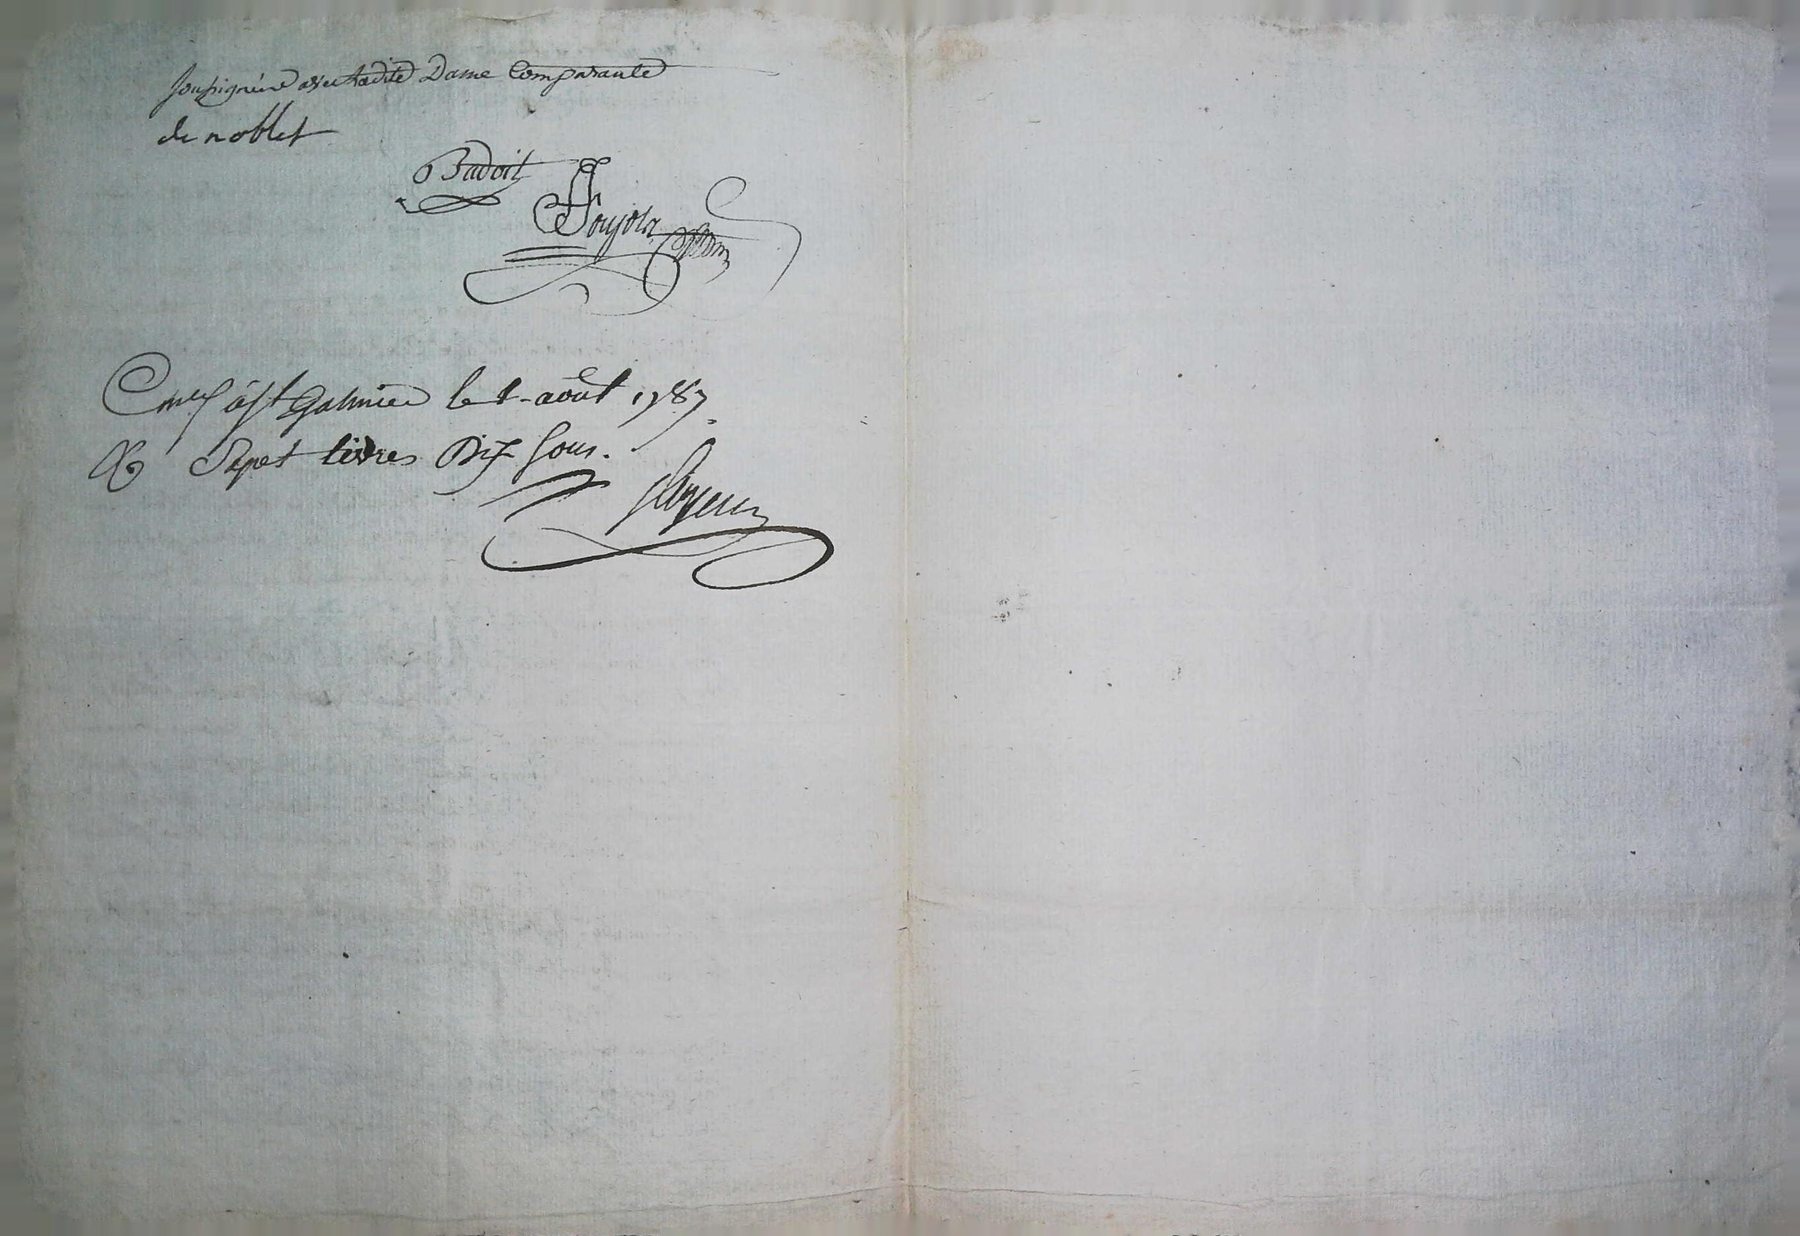 soussignées avec ladite Dame Comparante
de noblet
Badoit
Poujola
à St Galmier le août 1787
Sepet livres Dix sous.